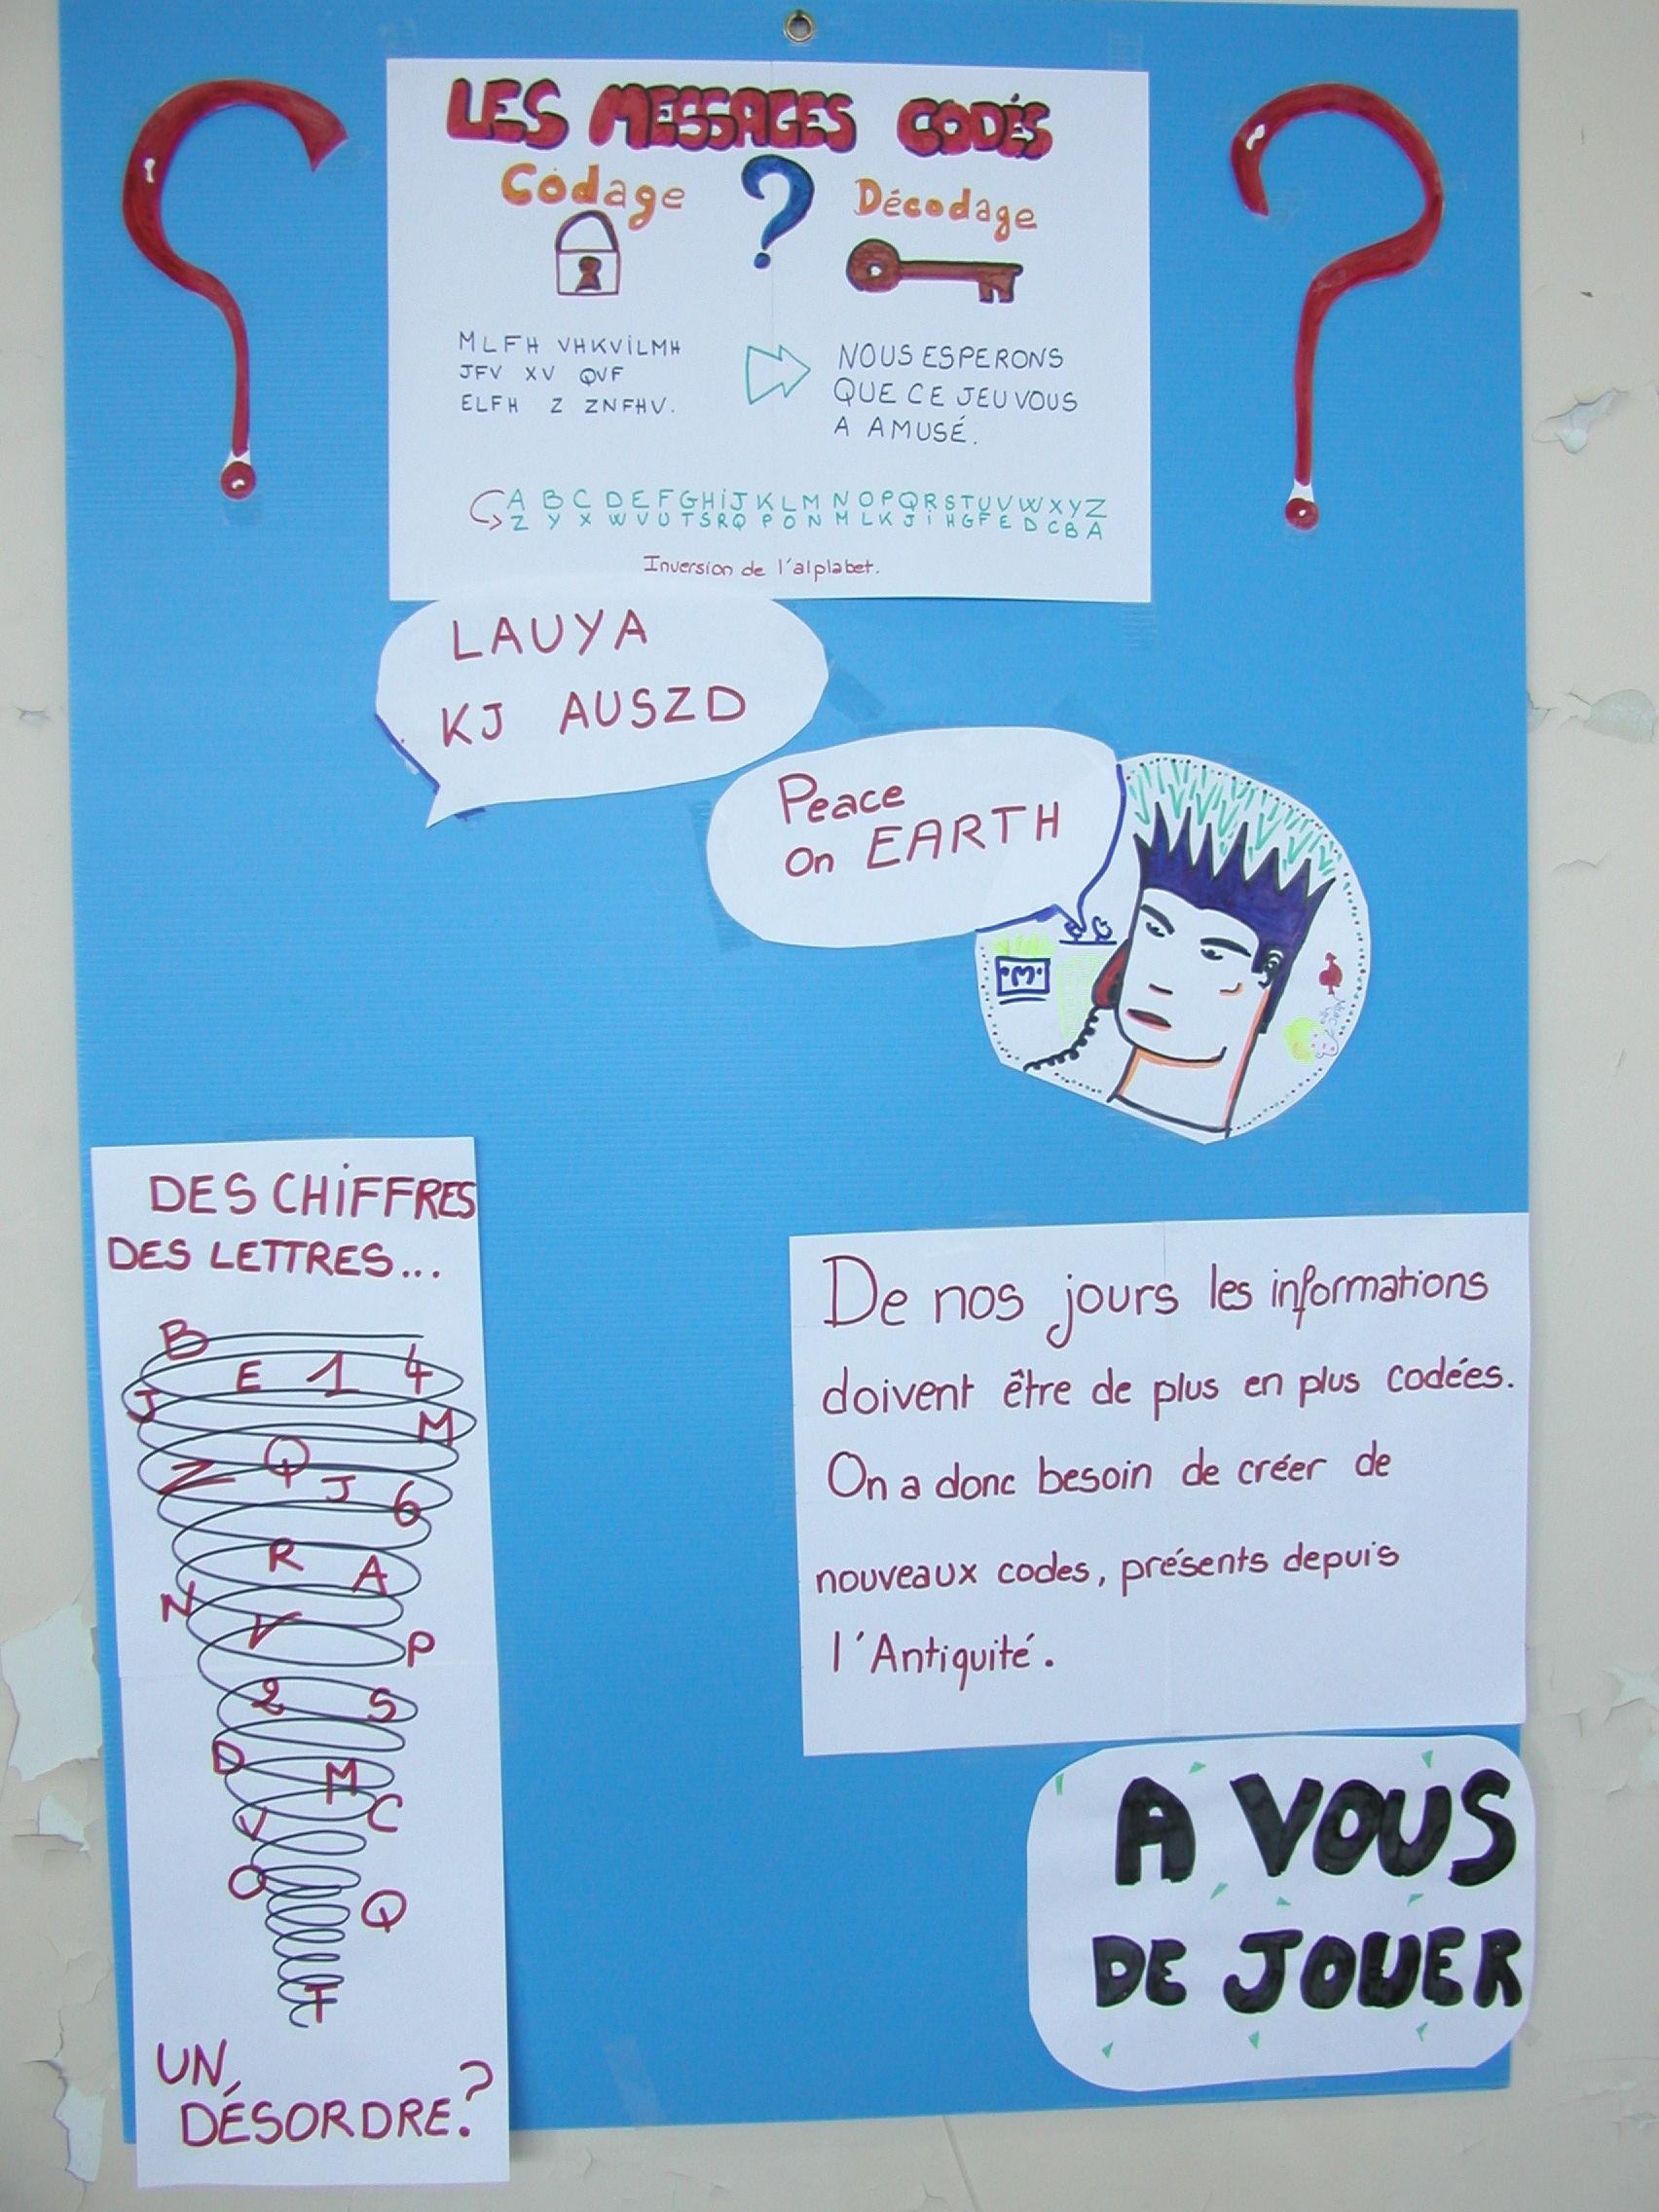 LES MESSAGES CODÉS
Codage ? Décodage
MLFH VHKVILMH
JFV XV QVF
ELFH Z ZNFHV.
NOUS ESPERONS
QUE CE JEU VOUS
A AMUSÉ.
A B C D E F G H I J K L M N O P Q R S T U V W X Y Z
Z Y X W V U T S R Q P O N M L K J I H G F E D C B A
Inversion de l'alplabet.
LAUYA
KJ AUSZD
Peace
on EARTH
DES CHIFFRES
DES LETTRES...
B
E 1 4
J M
Z Q J 6
R A
N V P
2 S
D M
V C
O Q
T
UN
DÉSORDRE?
De nos jours les informations
doivent être de plus en plus codées.
On a donc besoin de créer de
nouveaux codes, présents depuis
l'Antiquité.
A VOUS
DE JOUER